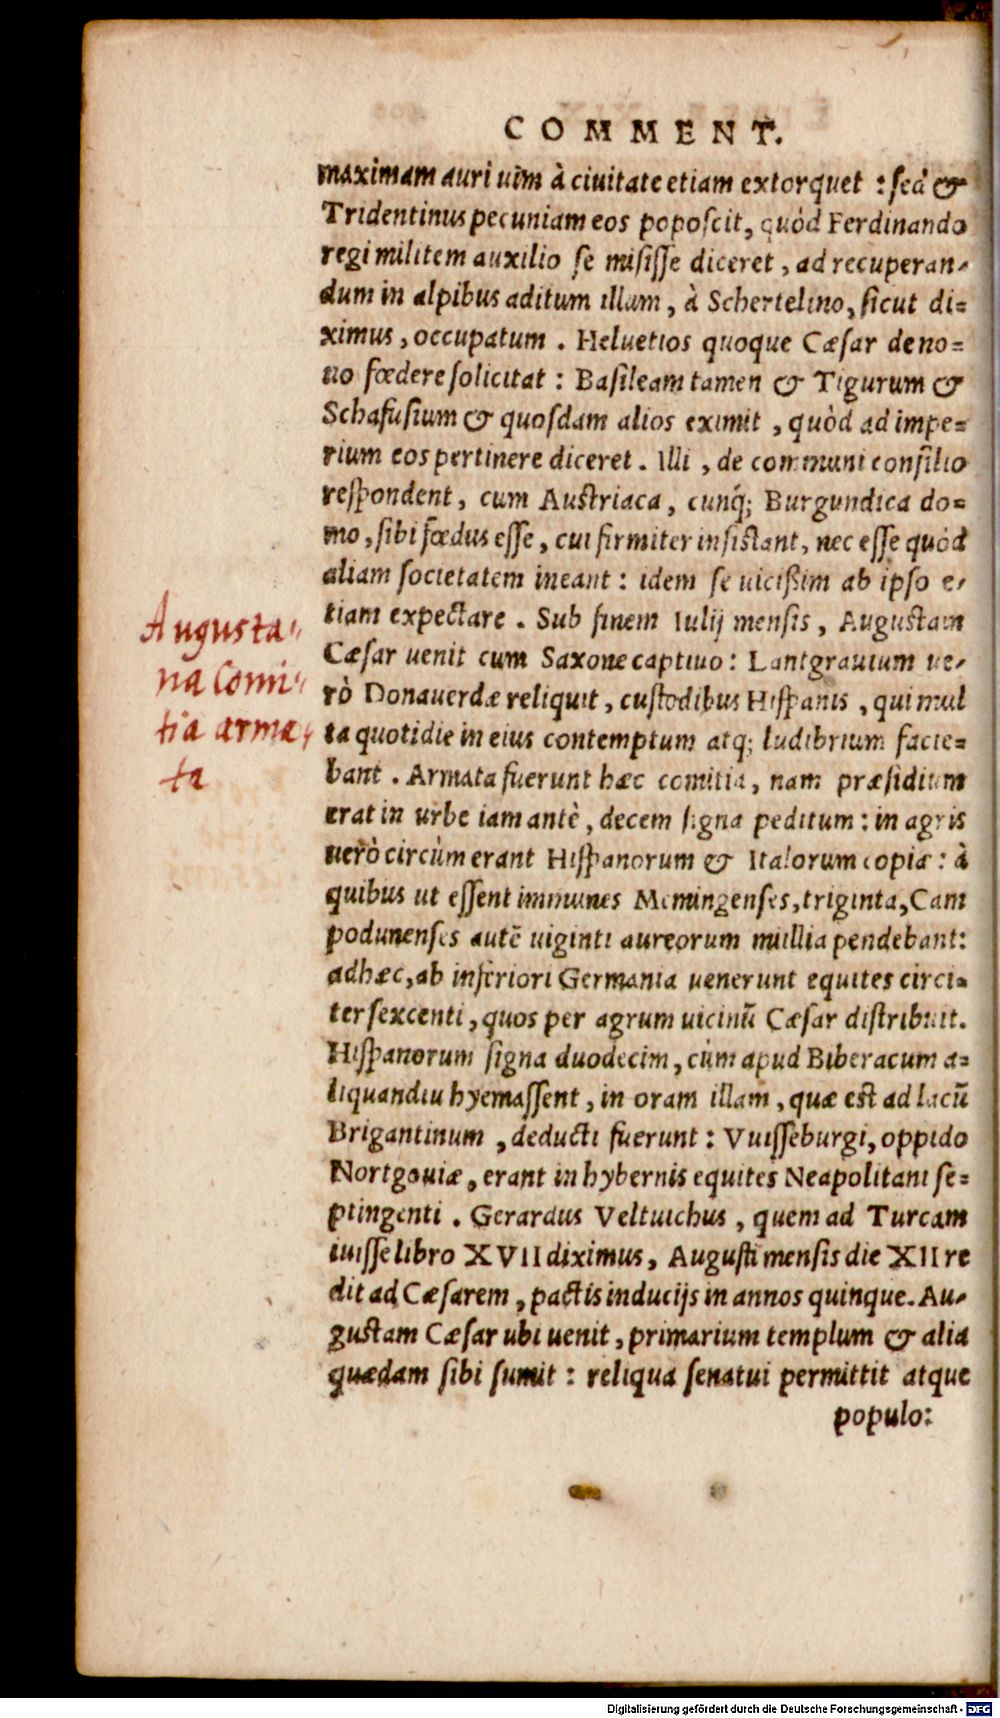 COMMENT.
maximam auri uim à ciuitate etiam extorquet : sed &
Tridentinus pecuniam eos poposcit, quòd Ferdinando
regi militem auxilio se misisse diceret, ad recuperan-
dum in alpibus aditum illum, à Schertelino, sicut di=
ximus, occupatum. Heluetios quoque Cæsar de no=
uo fœdere solicitat : Basileam tamen & Tigurum &
Schafusium & quosdam alios eximit, quòd ad impe=
rium eos pertinere diceret. Illi, de communi consilio
respondent, cum Austriaca, cunq́; Burgundica do=
mo, sibi fœdus esse, cui firmiter insistant, nec esse quòd
aliam societatem ineant : idem se uicißim ab ipso e-
tiam expectare. Sub finem Iulij mensis, Augustam
Cæsar uenit cum Saxone captiuo : Lantgrauium ue-
rò Donauerdæ reliquit, custodibus Hispanis, qui mul
ta quotidie in eius contemptum atq; ludibrium facie=
bant. Armata fuerunt hæc comitia, nam præsidium
erat in urbe iam antè, decem signa peditum : in agris
uerò circùm erant Hispanorum & Italorum copiæ : à
quibus ut essent immunes Memingenses, triginta, Cam
podunenses autē uiginti aureorum millia pendebant :
adhæc, ab inferiori Germania uenerunt equites circi=
ter sexcenti, quos per agrum uicinū Cæsar distribuit.
Hispanorum signa duodecim, cùm apud Biberacum a=
liquandiu hyemassent, in oram illam, quæ est ad lacū
Brigantinum, deducti fuerunt : Vuisseburgi, oppido
Nortgouiæ, erant in hybernis equites Neapolitani se=
ptingenti. Gerardus Veltuichus, quem ad Turcam
iuisse libro XVII diximus, Augusti mensis die XII re
dit ad Cæsarem, pactis inducijs in annos quinque. Au-
gustam Cæsar ubi uenit, primarium templum & alia
quædam sibi sumit : reliqua senatui permittit atque
populo:
Augusta-
na Comi-
tia arma-
ta
Digitalisierung gefördert durch die Deutsche Forschungsgemeinschaft - DFG